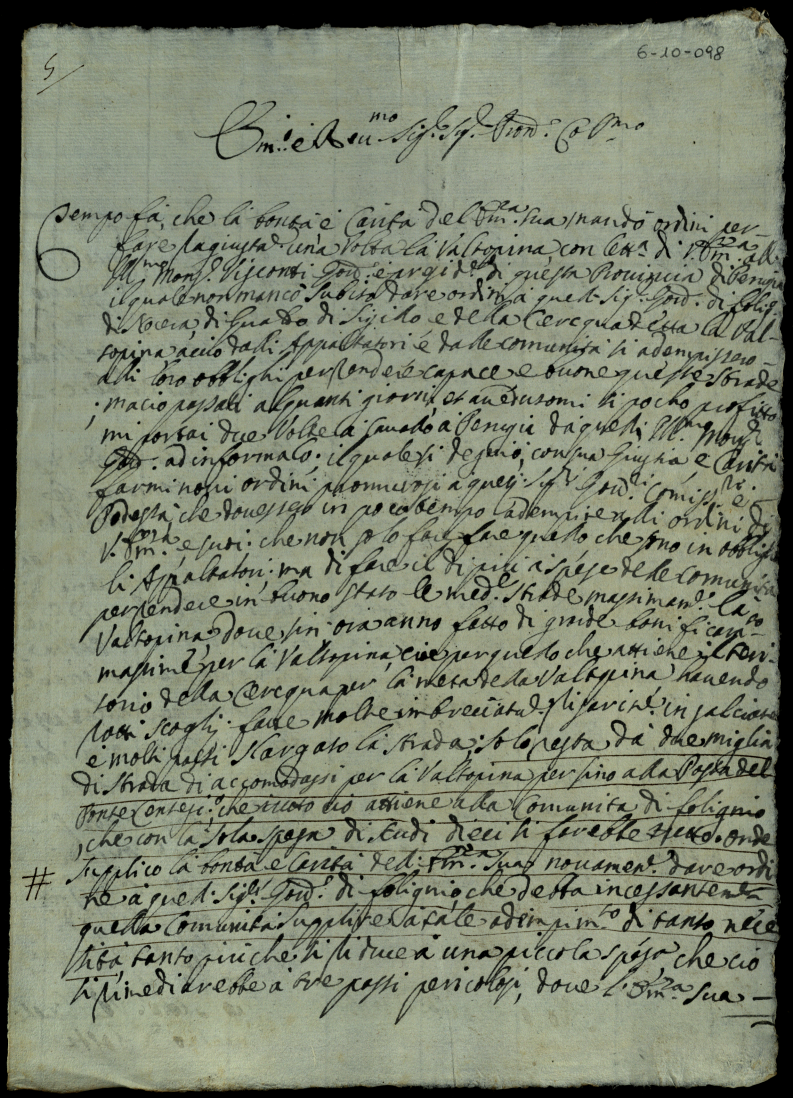 6-10-098
5/
Em.o e Reu.mo Sig.r Sig.r Pron.e Co.mo
Tempo fà, che la bontà e Carità del Em.za Sua mandò ordini per-
fare la giusta una volta la Valtopina, con lett.a di V. Em.za all
Ill.mo Mons.r Visconti Gou.re e di questa Prouincia di Perugia
il quale non mancò subito dare ordini a quell. Sig.ri Gou.ri di folig.
di Nocera, di Gualdo di Sigillo e della Cerequa detta la Val-
topina acciò dalli Appaltatori e dalle comunità si adempissero-
alli loro obblighi per rendere capace e buone queste strade
; ma ciò passati alquanti giorni, et auedutomi di pocho profitto
mi portai due volte a Cauallo a Perugia da quell. Ill.mo Mons.r
Gou.re ad informalo: il quale si degnò, con sua Giustia, e Carità
farmi noui ordini a quesi Sig.ri Gou.ri Comiss.ri e
Podestà, che douessero in poco tempo adempire alli ordini di
V. Em.za, e suoi: che non solo fare fare quello che sono in obbligo
li Appaltatori: ma di fare il di più a spese delle comunità
per rendere in buono stato le med.e strade massimam.e la
Valtopina doue sin ora anno fatto di grande bonificam.to
massime per la Valtopina, cioè per quello che attiene il Teri-
torio della Cerequa per la metà della Valtopina hauendo
rotti scoglj. fatte molte imbrecciatu.e in salciate
e molti passi slargato la strada: solo resta da due miglia
di strada di accomodarsi per la Valtopina per sino alla Posta del
Ponte Centesi.o che tutto ciò attiene alla Comunità di folignio
, che con la sola spesa di scudi dieci si farebbe tutto. onde
supplico la bontà e Carità dell. Em.za Sua nouamen.e dare ordi
# ne a quell. Sig.r Gou.e di folignio che debba incessantem.te
quella Comunità supplire a tale adimpim.to di tanto nece
sità tanto più che si riduce a una piccola spesa che ciò
si rimediarebbe a tre passi pericolosi, doue l. Em.za Sua -